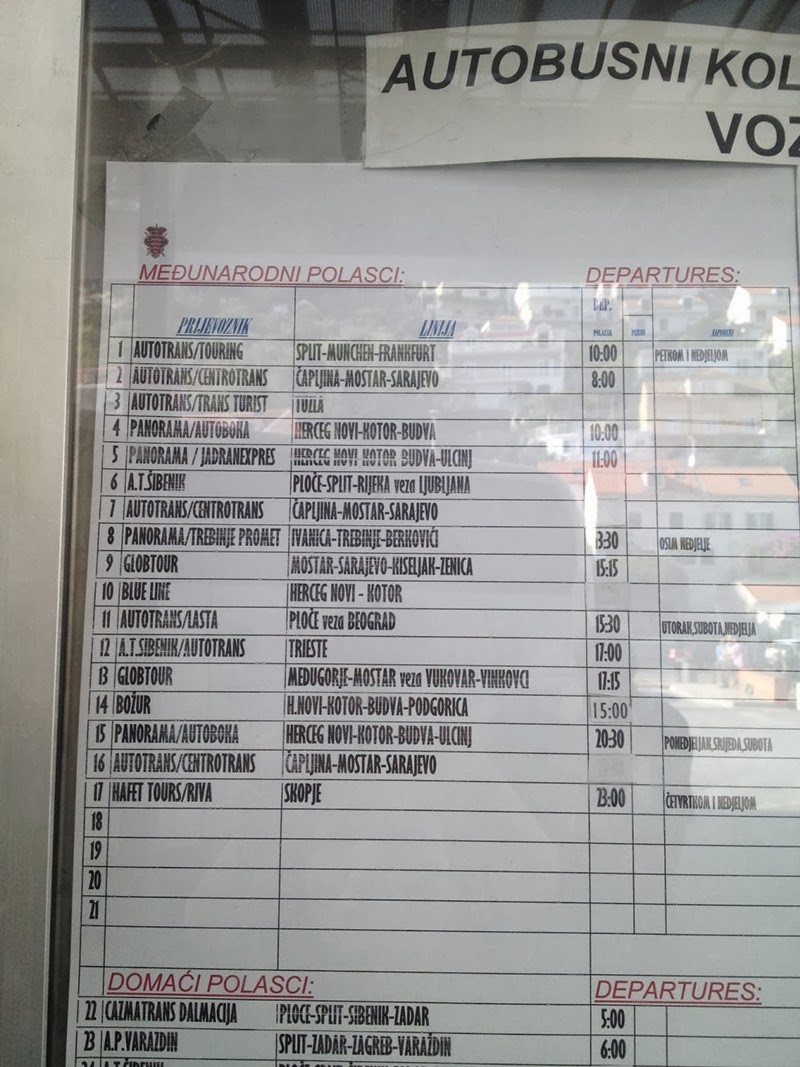 AUTOBUSNI KOL
VOZ
MEĐUNARODNI POLASCI: DEPARTURES:
PRIJEVOZNIK LINIJA DEP. POLAZAK PERON
1 AUTOTRANS/TOURING SPLIT-MUNCHEN-FRANKFURT 10:00 PETKOM I NEDJELJOM
2 AUTOTRANS/CENTROTRANS ČAPLJINA-MOSTAR-SARAJEVO 8:00
3 AUTOTRANS/TRANS TURIST TUZLA
4 PANORAMA/AUTOBOKA HERCEG NOVI-KOTOR-BUDVA 10:00
5 PANORAMA / JADRANEXPRES HERCEG NOVI KOTOR BUDVA-ULCINJ 11:00
6 A.T.ŠIBENIK PLOČE-SPLIT-RIJEKA veza LJUBLJANA
7 AUTOTRANS/CENTROTRANS ČAPLJINA-MOSTAR-SARAJEVO
8 PANORAMA/TREBINJE PROMET IVANICA-TREBINJE-BERKOVIĆI 13:30 OSIM NEDJELJE
9 GLOBTOUR MOSTAR-SARAJEVO-KISELJAK-ZENICA 15:15
10 BLUE LINE HERCEG NOVI - KOTOR
11 AUTOTRANS/LASTA PLOČE veza BEOGRAD 15:30 UTORAK,SUBOTA,NEDJELJA
12 A.T.SIBENIK/AUTOTRANS TRIESTE 17:00
13 GLOBTOUR MEDUGORJE-MOSTAR veza VUKOVAR-VINKOVCI 17:15
14 BOŽUR H.NOVI-KOTOR-BUDVA-PODGORICA 15:00
15 PANORAMA/AUTOBOKA HERCEG NOVI-KOTOR-BUDVA-ULCINJ 20:30 PONEDJELJAK,SRIJEDA,SUBOTA
16 AUTOTRANS/CENTROTRANS ČAPLJINA-MOSTAR-SARAJEVO
17 HAFET TOURS/RIVA SKOPJE 23:00 ČETVRTKOM I NEDJELJOM
18
19
20
21
DOMAĆI POLASCI: DEPARTURES:
22 CAZMATRANS DALMACIJA PLOCE-SPLIT-SIBENIK-ZADAR 5:00
23 A.P.VARAZDIN SPLIT-ZADAR-ZAGREB-VARAŽDIN 6:00